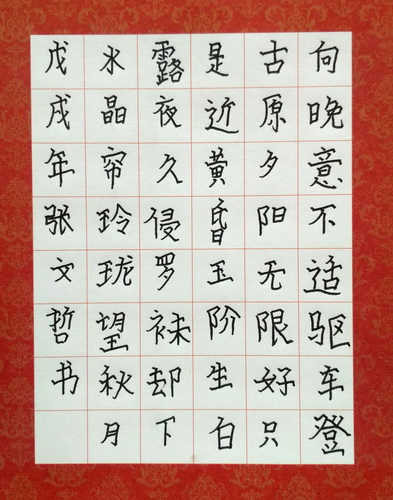 向晚意不适驱车登
古原夕阳无限好只
是近黄昏玉阶生白
露夜久侵罗袜却下
水晶帘玲珑望秋月
戊戌年张文哲书